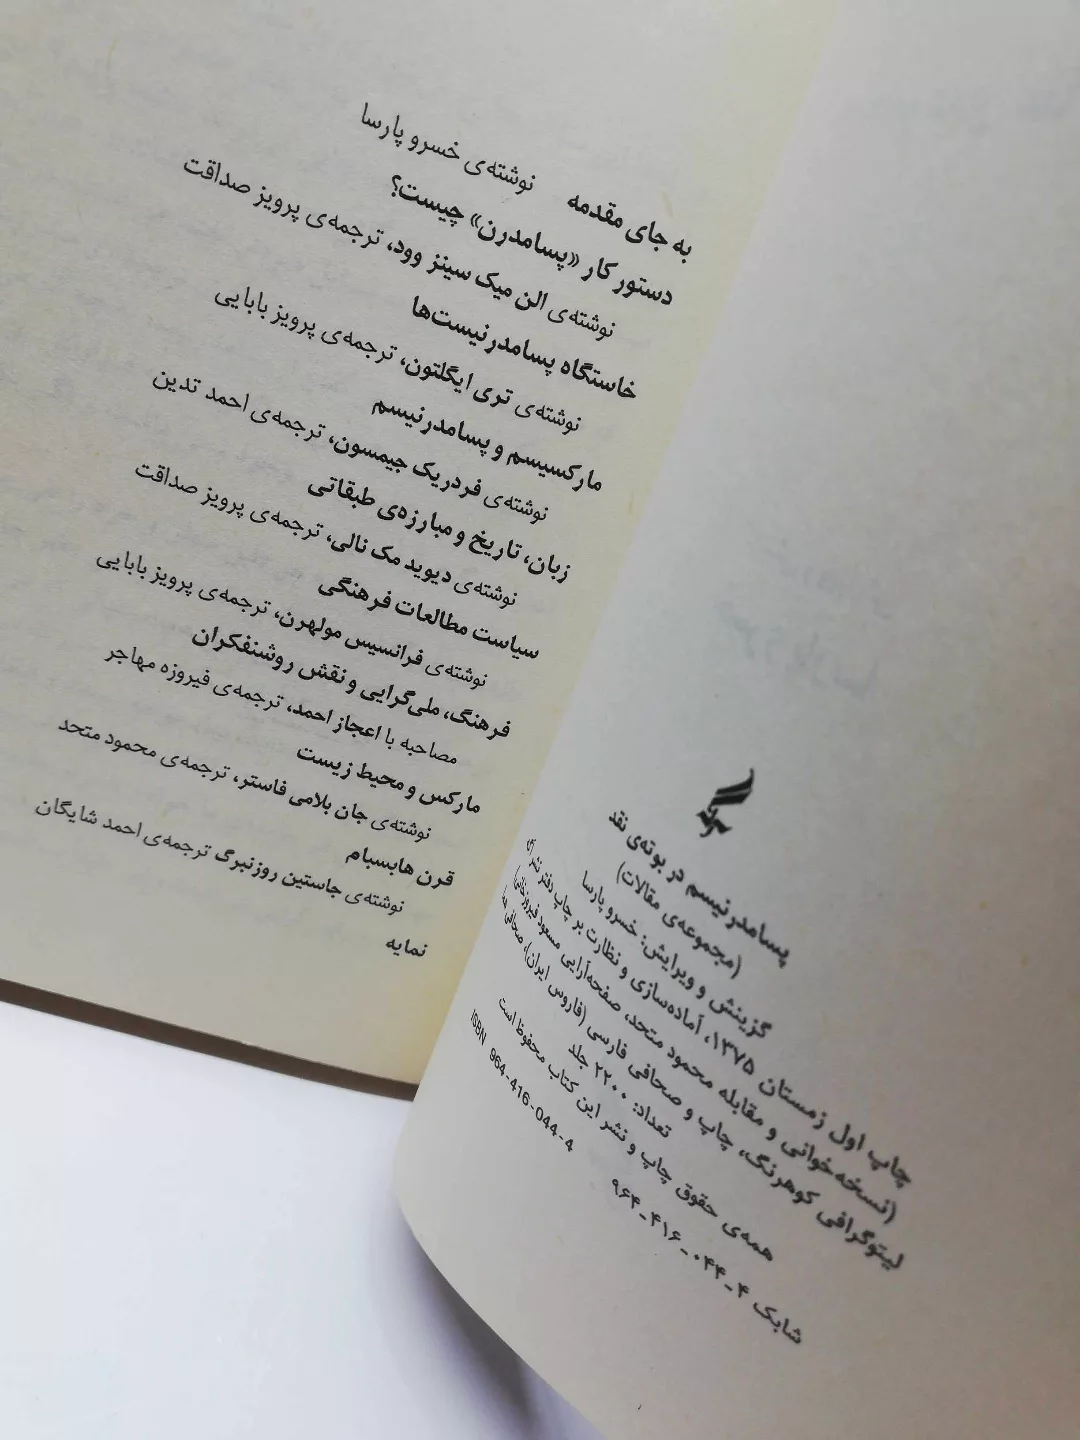 به جای مقدمه نوشته‌ی خسرو پارسا
دستور کار «پسامدرن» چیست؟
نوشته‌ی الن میک سینز وود، ترجمه‌ی پرویز صداقت
خاستگاه پسامدرنیست‌ها
نوشته‌ی تری ایگلتون، ترجمه‌ی پرویز بابایی
مارکسیسم و پسامدرنیسم
نوشته‌ی فردریک جیمسون، ترجمه‌ی احمد تدین
زبان، تاریخ و مبارزه‌ی طبقاتی
نوشته‌ی دیوید مک نالی، ترجمه‌ی پرویز صداقت
سیاست مطالعات فرهنگی
نوشته‌ی فرانسیس مولهرن، ترجمه‌ی پرویز بابایی
فرهنگ، ملی‌گرایی و نقش روشنفکران
مصاحبه با اعجاز احمد، ترجمه‌ی فیروزه مهاجر
مارکس و محیط زیست
نوشته‌ی جان بلامی فاستر، ترجمه‌ی محمود متحد
قرن هابسبام
نوشته‌ی جاستین روزنبرگ ترجمه‌ی احمد شایگان
نمایه
پسامدرنیسم در بوته‌ی نقد
(مجموعه‌ی مقالات)
گزینش و ویرایش: خسرو پارسا
چاپ اول زمستان ۱۳۷۵، آماده‌سازی و نظارت بر چاپ دفتر نشر
(نسخه‌خوانی و مقابله محمود متحد، صفحه‌آرایی مسعود فیروزخانی)
لیتوگرافی کوهرنگ، چاپ و صحافی فارسی (فاروس ایران)، صحافی
تعداد: ۲۲۰۰ جلد
همه‌ی حقوق چاپ و نشر این کتاب محفوظ است
ISBN 964-416-044-4
شابک ۴-۰۴۴-۴۱۶-۹۶۴